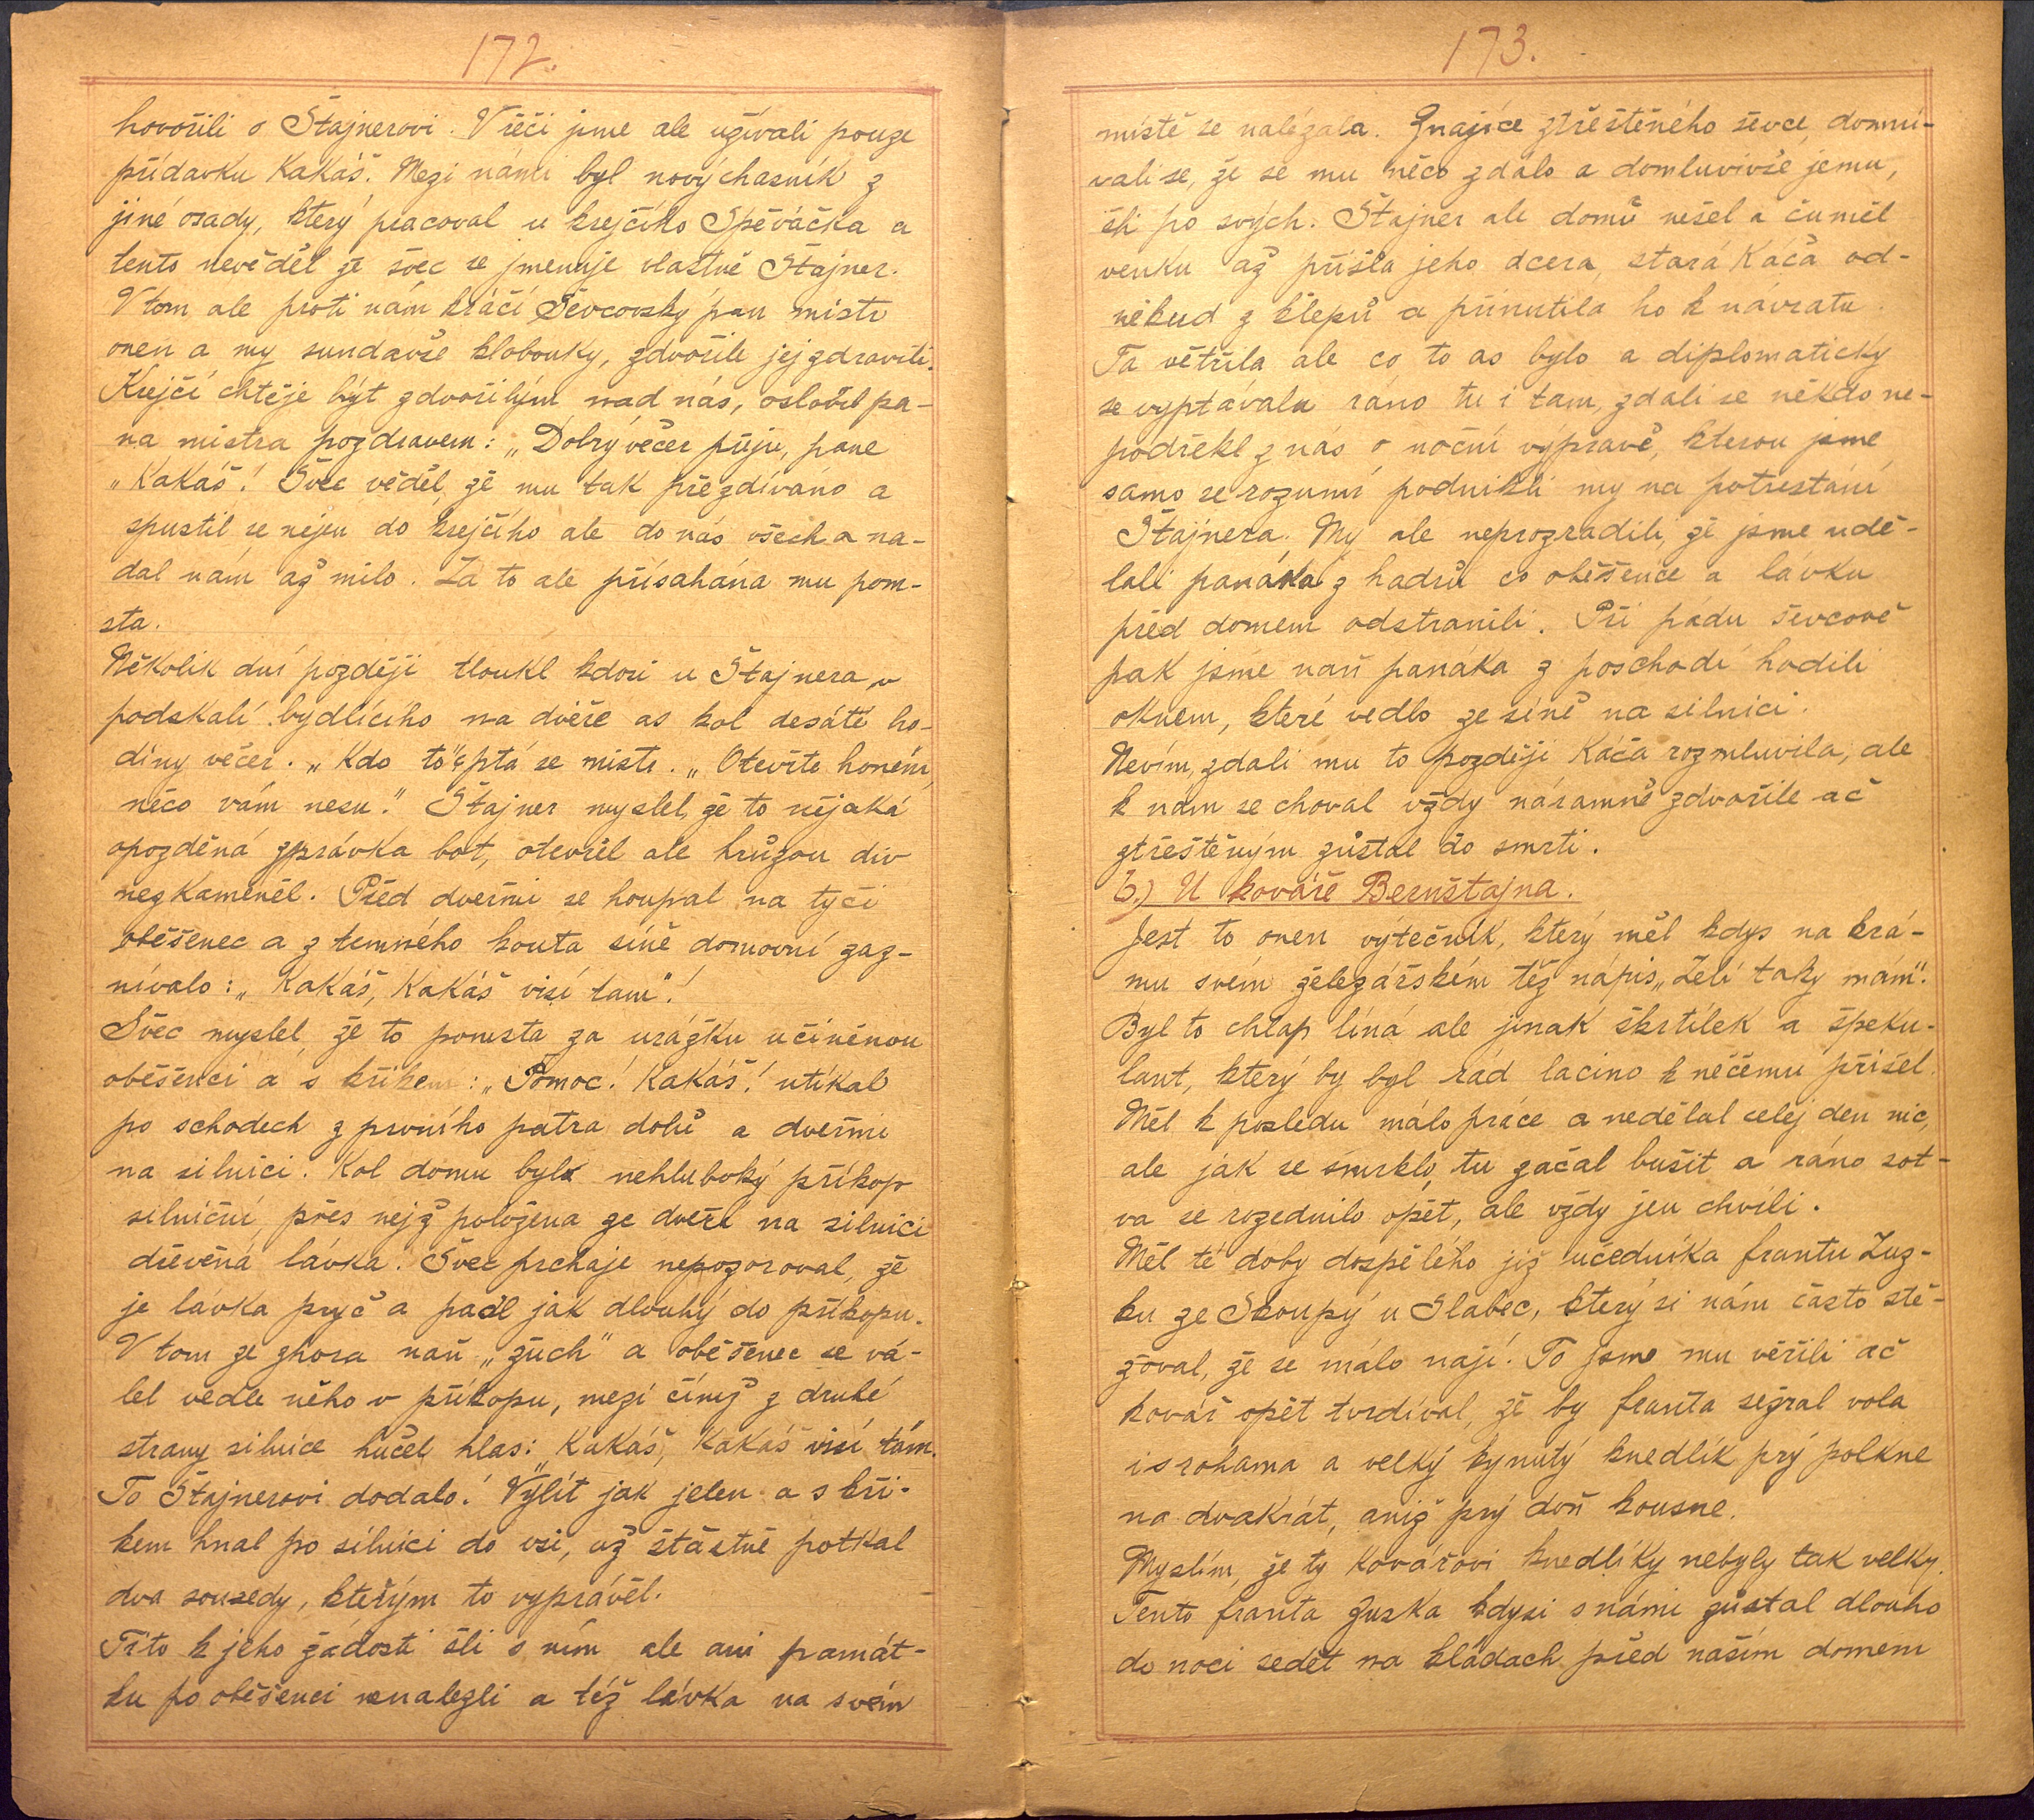 172.
hovořili o Štajnerovi. V řeči jsme ale užívali pouze
přídavku Kakáš. Mezi námi byl nový chasník z
jiné osady, který pracoval u krejčího Spěváčka a
tento nevěděl že švec se jmenuje vlastně Štajner.
V tom ale proti nám kráčí Ševcovský pan mistr
onen a my sundavše klobouky, zdvořile jej zdravili.
Krejčí chtěje být zdvořilým nad nás, oslovil pa-
na mistra pozdravem: „Dobrý večer přeju, pane
„Kakáš! Švec věděl, že mu tak přezdíváno a
spustil se nejen do krejčího ale do nás všech a na-
dal nám až milo. Za to ale přísahána mu pom-
sta.
Několik dní později tloukl kdosi u Štajnera v
podskalí bydlícího na dvéře as kol desáté ho-
diny večer. „Kdo to"? ptá se mistr. „Otevřte honem,
něco vám nesu." Štajner myslel, že to nějaká
opozděná zprávka bot, otevřel ale hrůzou div
nezkameněl. Před dveřmi se houpal na tyči
oběšenec a z temného kouta síně domovní zaz-
nívalo: „Kakáš, Kakáš visí tam"!
Švec myslel, že to pomsta za urážku učiněnou
oběšenci a s křikem: „Pomoc! Kakáš! utíkal
po schodech z prvního patra dolů a dveřmi
na silnici. Kol domu byl nehluboký příkop
silniční, přes nejž položena ze dveří na silnici
dřevěná lávka. Švec prchaje nepozoroval, že
je lávka pryč a padl jak dlouhý do příkopu.
V tom ze zhora naň „žuch" a oběšenec se vá-
lel vedle něho v příkopu, mezi čímž z druhé
strany silnice hučel hlas: „Kakáš, Kakáš visí tám.
To Štajnerovi dodalo! Vylít jak jelen a s kři-
kem hnal po silnici do vsi, až šťastně potkal
dva sousedy, kteřým to vyprávěl.
Tito k jeho žádosti šli s ním ale ani památ-
ku po oběšenci nenalezli a též lávka na svém
173.
místě se nalézala. Znajíce ztřeštěného ševce, domní-
vali se, že se mu něco zdálo a domluvivše jemu,
šli po svých. Štajner ale domů nešel a čuměl
venku až přišla jeho dcera, stará Káča od-
někud z klepů a přinutila ho k návratu.
Ta větřila ale co to as bylo a diplomaticky
se vyptávala ráno tu i tam, zdali se někdo ne-
podřekl z nás o noční výpravě, kterou jsme
samo se rozumí podnikli my na potrestání
Štajnera. My ale neprozradili, že jsme udě-
lali panáka z hadrů co oběšence a lávku
před domem odstranili. Při pádu ševcově
pak jsme naň panáka z poschodí hodili
oknem, které vedlo ze síně na silnici.
Nevím, zdali mu to později Káča rozmluvila, ale
k nám se choval vždy náramně zdvořile ač
ztřeštěným zůstal do smrti.
b.) U kováře Bernštajna.
Jest to onen výtečník, který měl kdys na krá-
mu svém železářském též nápis „Zelí taky mám".
Byl to chlap líná ale jinak škrtílek a špeku-
lant, který by byl rád lacino k něčemu přišel.
Měl k posledu málo práce a nedělal celej den nic,
ale jak se smrklo, tu začal bušit a ráno sot-
va se rozednilo opět, ale vždy jen chvíli.
Měl té doby dospělého již učedníka frantu Zuz-
ku ze Skoupý u Slabec, který si nám často stě-
žoval, že se málo nají. To jsme mu věřili ač
kovář opět tvrdíval, že by franta sežral vola
i s rohama a velký kynutý knedlík prý polkne
na dvakrát, aniž prý doň kousne.
Myslím, že ty kovářovi knedlíky nebyly tak velky.
Tento franta Zuzka kdysi s námi zůstal dlouho
do noci sedět na kládach před naším domem